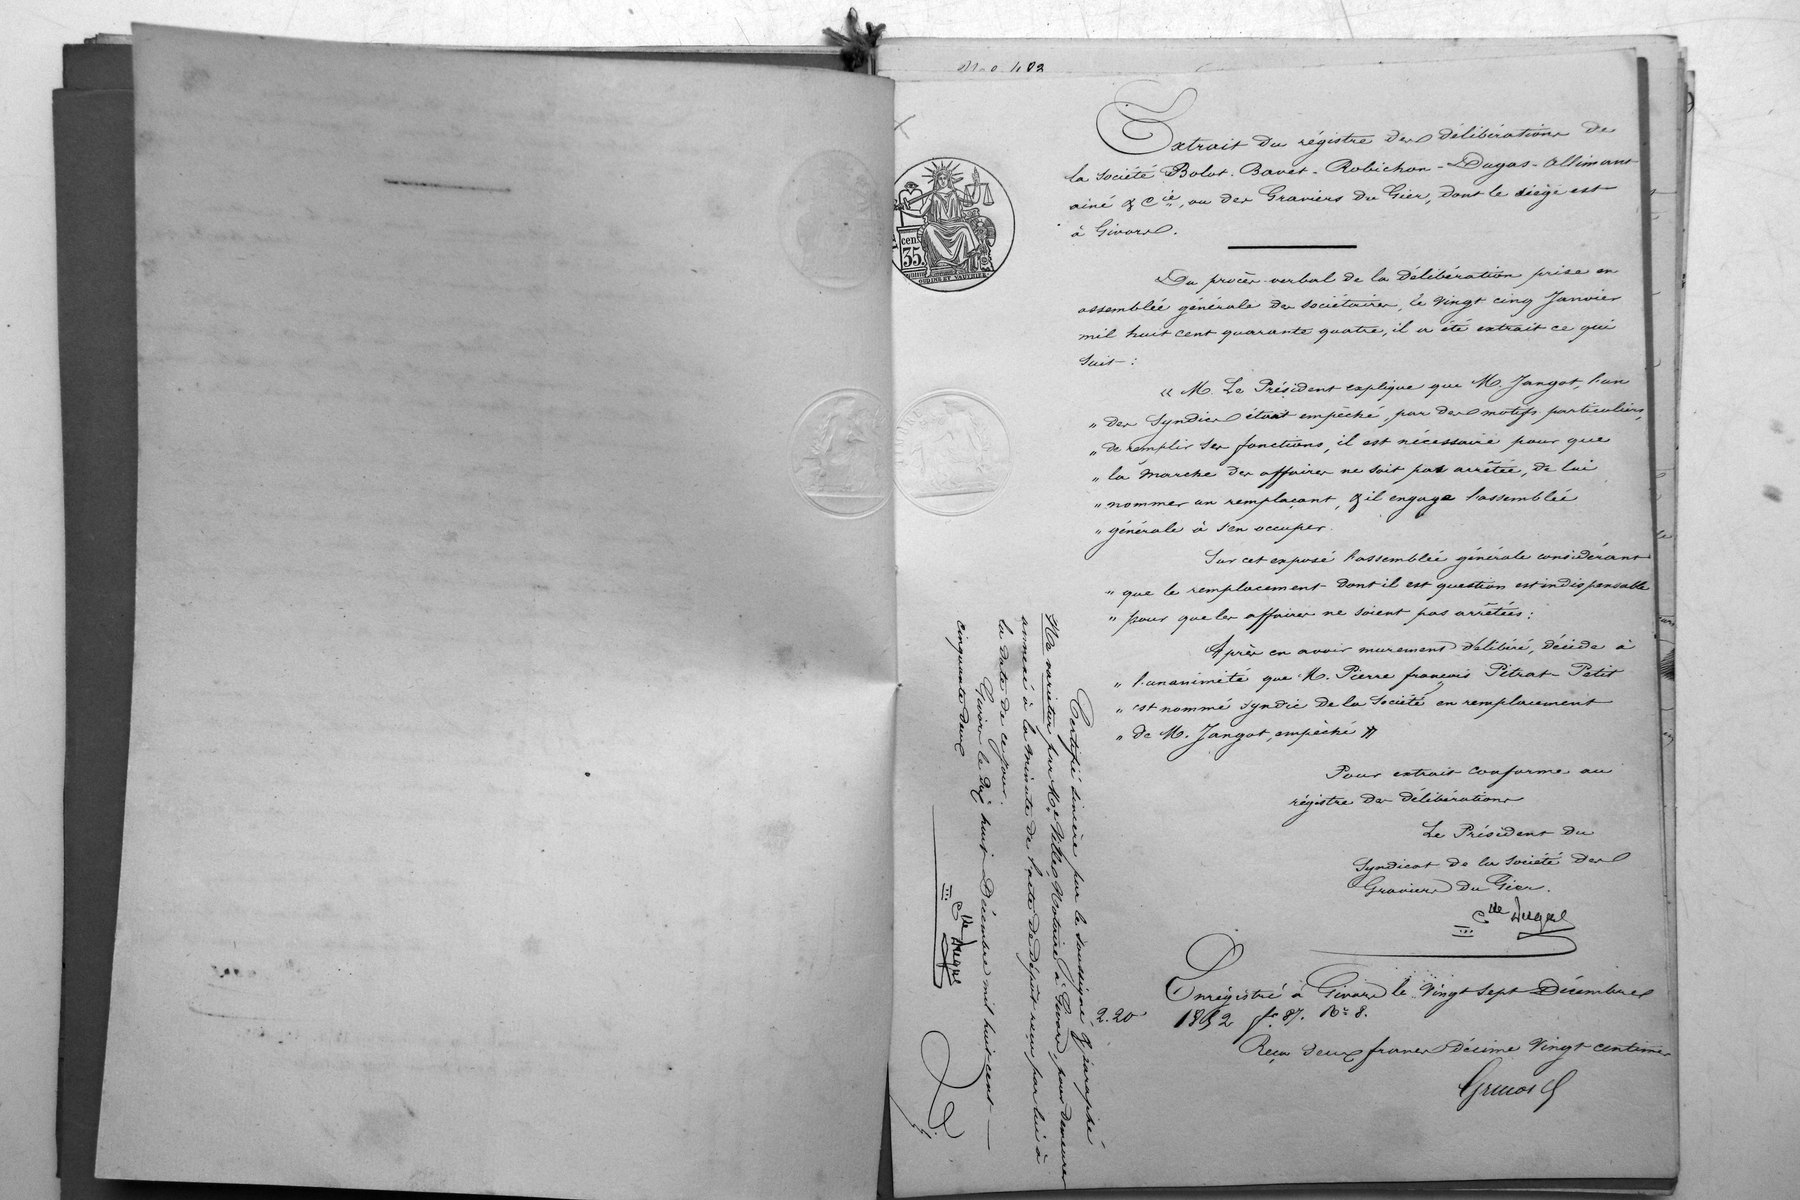 Extrait du régistre des délibérations de
la Société Bolot-Bavet-Robichon-Dugas-Allimant
ainé & Cie, ou des Graviers du Gier, dont le siège est
à Givors.
Du procès-verbal de la délibération prise en
assemblée générale des sociétaires, le vingt cinq Janvier
mil huit cent quarante quatre, il a été extrait ce qui
suit :
« M. Le Président explique que M. Jangot, l'un
" des Syndics étant empêché, par des motifs particuliers,
" de remplir ses fonctions, il est nécessaire pour que
" la marche des affaires ne soit pas arrêtée, de lui
" nommer un remplaçant, & il engage l'assemblée
" générale à s'en occuper.
Sur cet exposé l'assemblée générale considérant
" que le remplacement dont il est question est indispensable
" pour que les affaires ne soient pas arrêtées :
Après en avoir murement délibéré, décide à
" l'unanimité que M. Pierre françois Pétrat-Petit
" est nommé syndic de la Société en remplacement
" de M. Jangot, empêché »
Pour extrait conforme au
régistre des délibérations
Le Président du
Syndicat de la Société des
Graviers du Gier.
Clle Dugas
Enregistré à Givors le vingt sept Décembre
1852 fo 87. No 8.
2.20
Reçu deux francs Décime vingt centimes
Certifié sincère par le soussigné, & paraphé
Ne varietur par Me Notaire à Givors, pour demeurer
annexé à la minute de l'acte de dépôt reçu par lui à
la date de ce jour.
Givors le dix huit Décembre mil huit cent
cinquante deux
Clle Dugas
cent.
35.